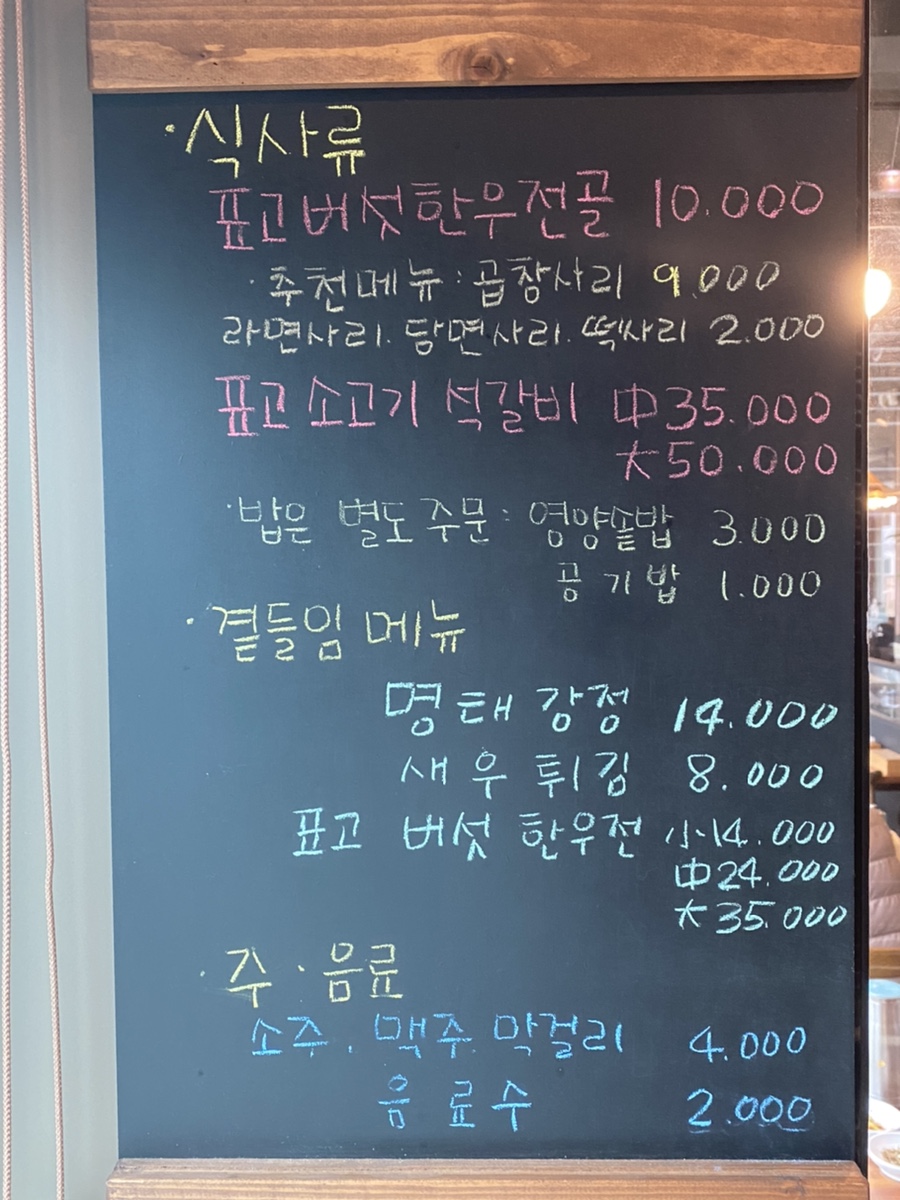 ·식사류
표고버섯한우전골 10.000
·추천메뉴:곱창사리 9.000
라면사리. 당면사리. 떡사리 2.000
표고소고기 석갈비 中35.000
大50.000
·밥은 별도주문: 영양솥밥 3.000
공기밥 1.000
·곁들임 메뉴
명태강정 14.000
새우튀김 8.000
표고 버섯 한우전 小14.000
中24.000
大35.000
·주·음료
소주. 맥주. 막걸리 4.000
음료수 2.000